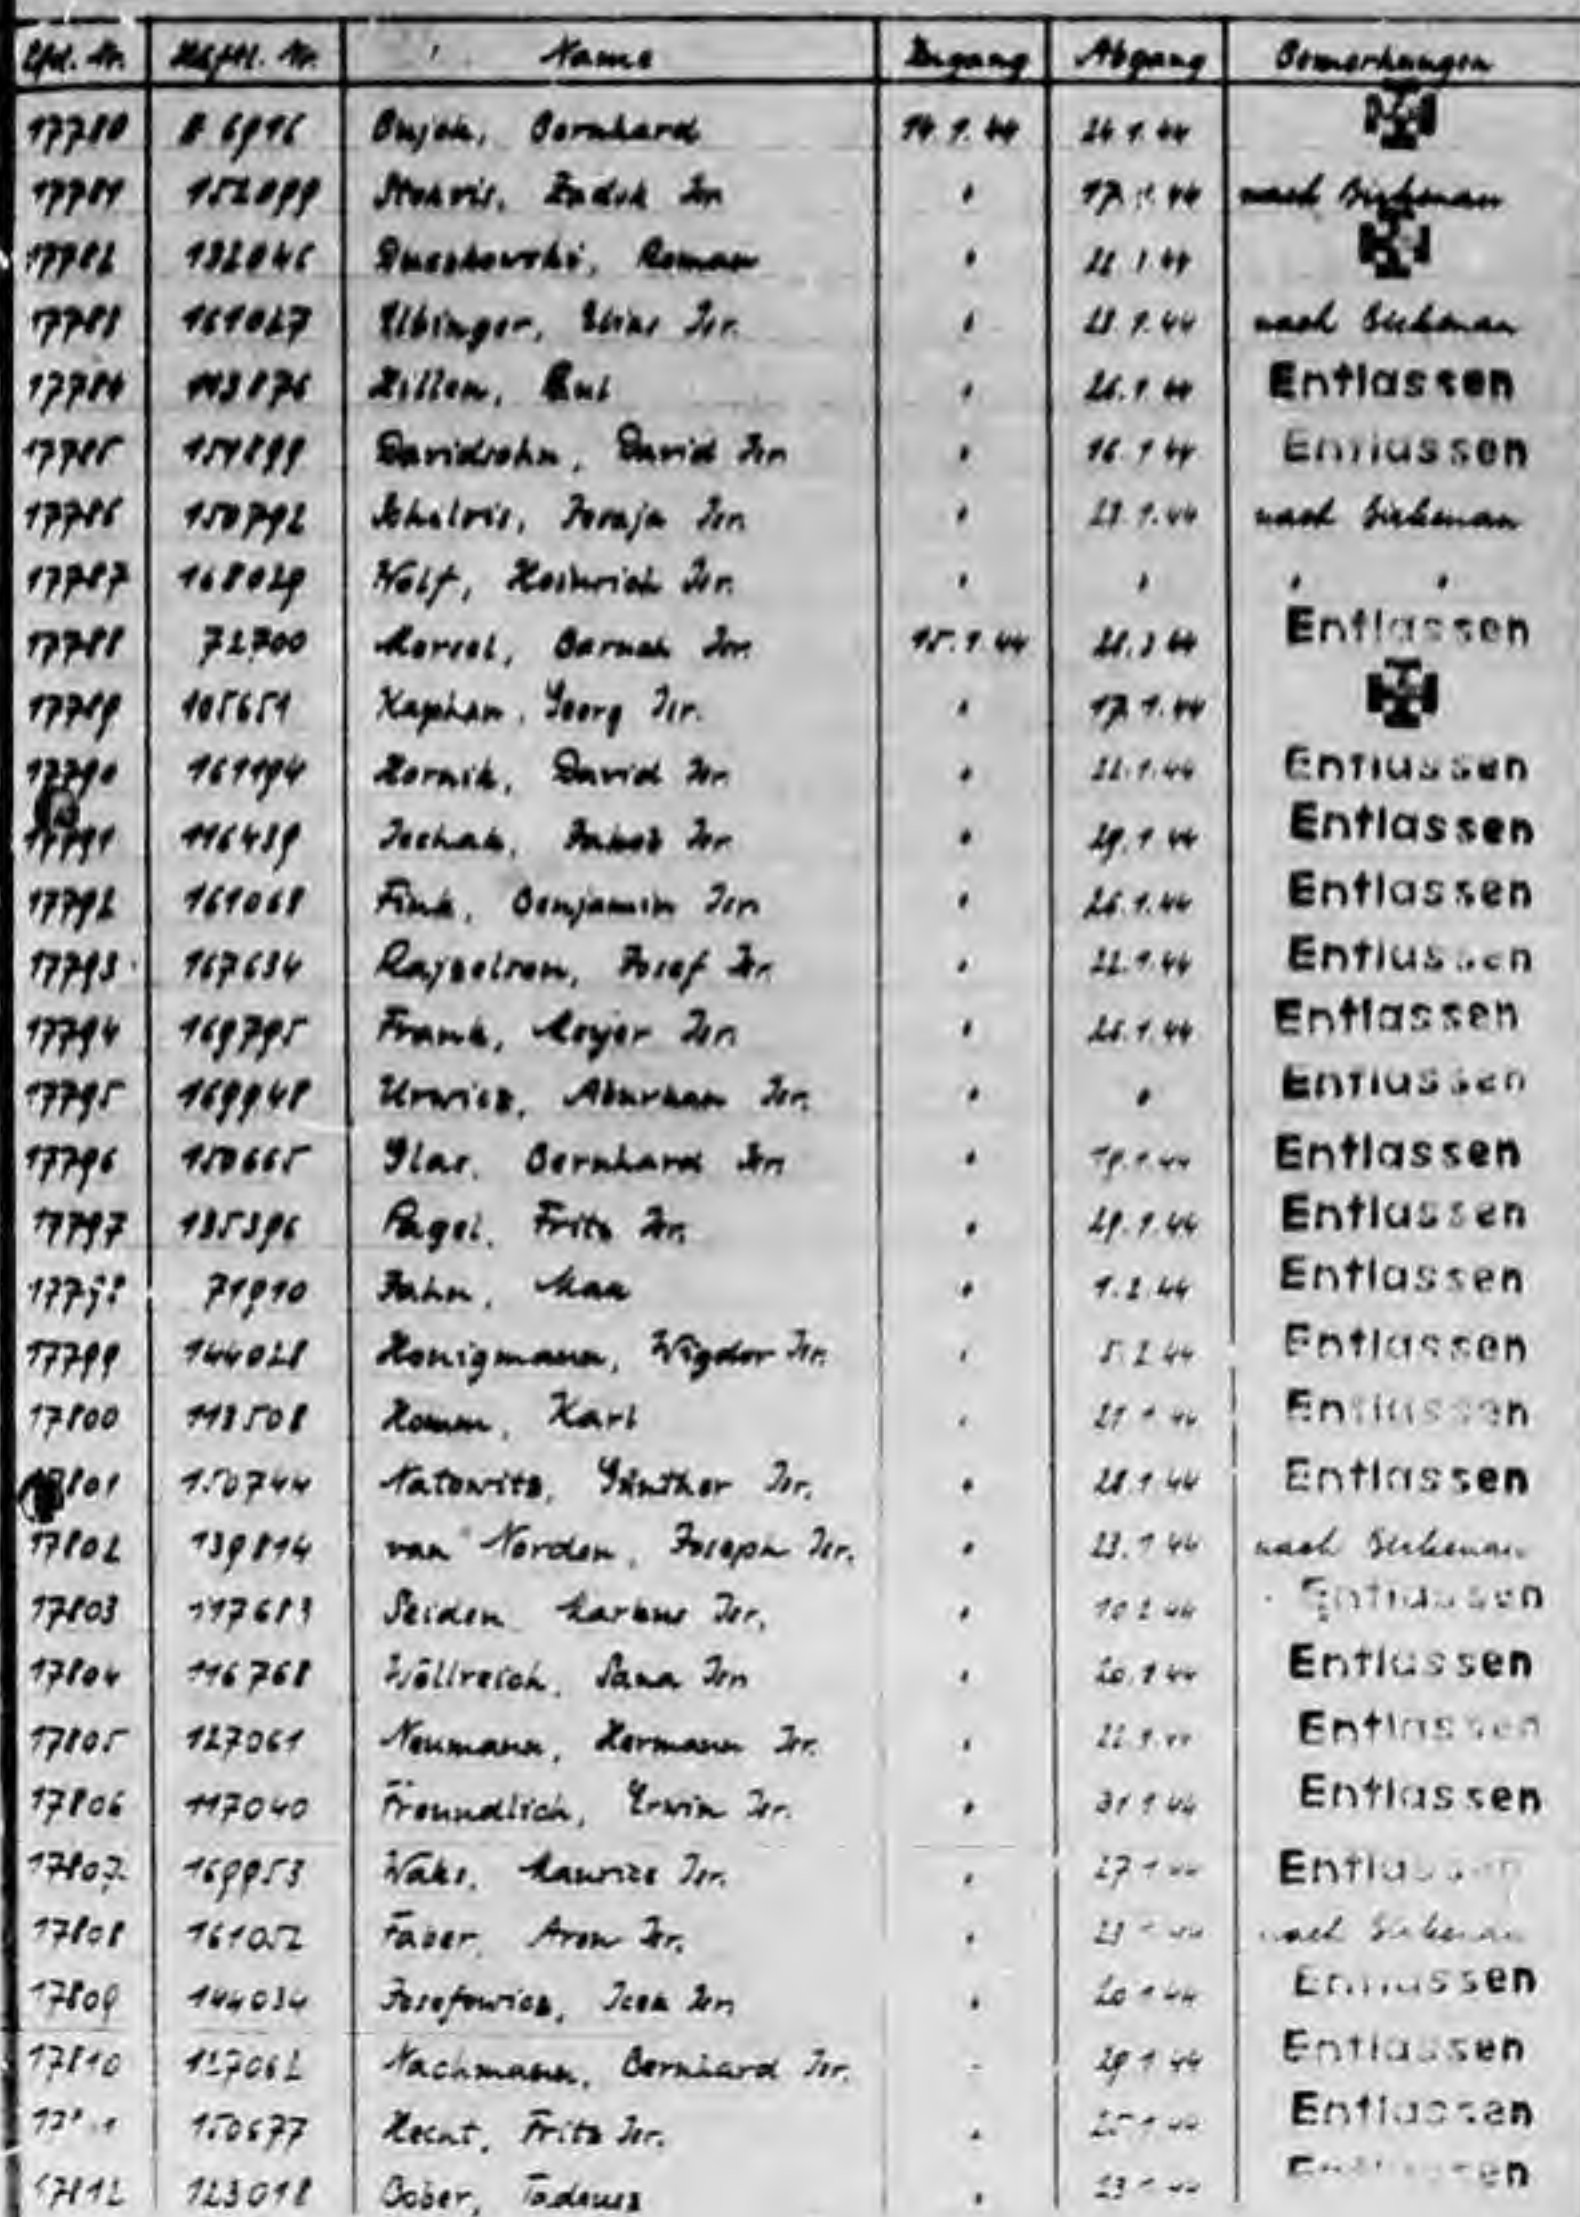 Lfd. Nr. Häftl. Nr. Name Zugang Abgang Bemerkungen
17780 Bernhard 14.1.44 24.1.44
17781 Isr. " 17.1.44 nach Birkenau
17782 132046 Roman " 44
17783 161027 Elbinger, Isr. " 23.1.44 nach Birkenau
17784 113876 " 26.1.44 Entlassen
17785 151899 Davidsohn, David Isr. " 16.1.44 Entlassen
17786 150792 Isr. " 23.1.44 nach Birkenau
17787 168029 Wolf, Heinrich Isr. " " " "
17788 72700 Isr. 15.1.44 Entlassen
17789 105651 Kaphan, Georg Isr. " 17.1.44
17790 161194 Hornik, David Isr. " 22.1.44 Entlassen
17791 116439 Isr. " 29.1.44 Entlassen
17792 161068 Fink, Benjamin Isr. " 26.1.44 Entlassen
17793 167634 Rajzelson, Josef Isr. " 22.1.44 Entlassen
17794 169795 Frank, Meyer Isr. " 26.1.44 Entlassen
17795 169948 Urwicz, Abraham Isr. " " Entlassen
17796 150665 Glas, Bernhard Isr. " 19.1.44 Entlassen
17797 135396 Pagel, Fritz Isr. " 29.1.44 Entlassen
71910 Jahn, Max " 1.2.44 Entlassen
17799 144028 Honigmann, Wigdor Isr. " 5.2.44 Entlassen
17800 113508 Karl " 21.1.44 Entlassen
17801 150744 Natowitz, Günther Isr. " 28.1.44 Entlassen
17802 139814 van Norden, Joseph Isr. " 23.1.44 nach Birkenau
17803 117683 Seiden Markus Isr. " 10.2.44 Entlassen
17804 116768 Wollreich, Sana Isr. " 20.1.44 Entlassen
17805 127061 Neumann, Hermann Isr. " 22.1.44 Entlassen
17806 117040 Freundlich, Erwin Isr. " 31.1.44 Entlassen
17807 169953 Waks, Maurice Isr. " 27.1.44 Entlassen
17808 161052 Faber, Aron Isr. " 23.1.44 nach Birkenau
17809 144034 Josefowicz, Icek Isr. " 20.1.44 Entlassen
17810 127062 Nachmann, Bernhard Isr. " 29.1.44 Entlassen
150677 Hecht, Fritz Isr. " 25.1.44 Entlassen
17812 123018 Bober, Tadeusz " 23.1.44 Entlassen